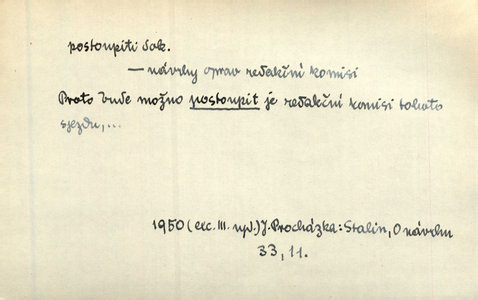 postoupiti dok.
— návrhy oprav redakční komisi
Proto bude možno postoupit je redakční komisi tohoto
sjezdu,...
1950 (exc. III. vyd.) J. Procházka: Stalin, O návrhu
33, 11.